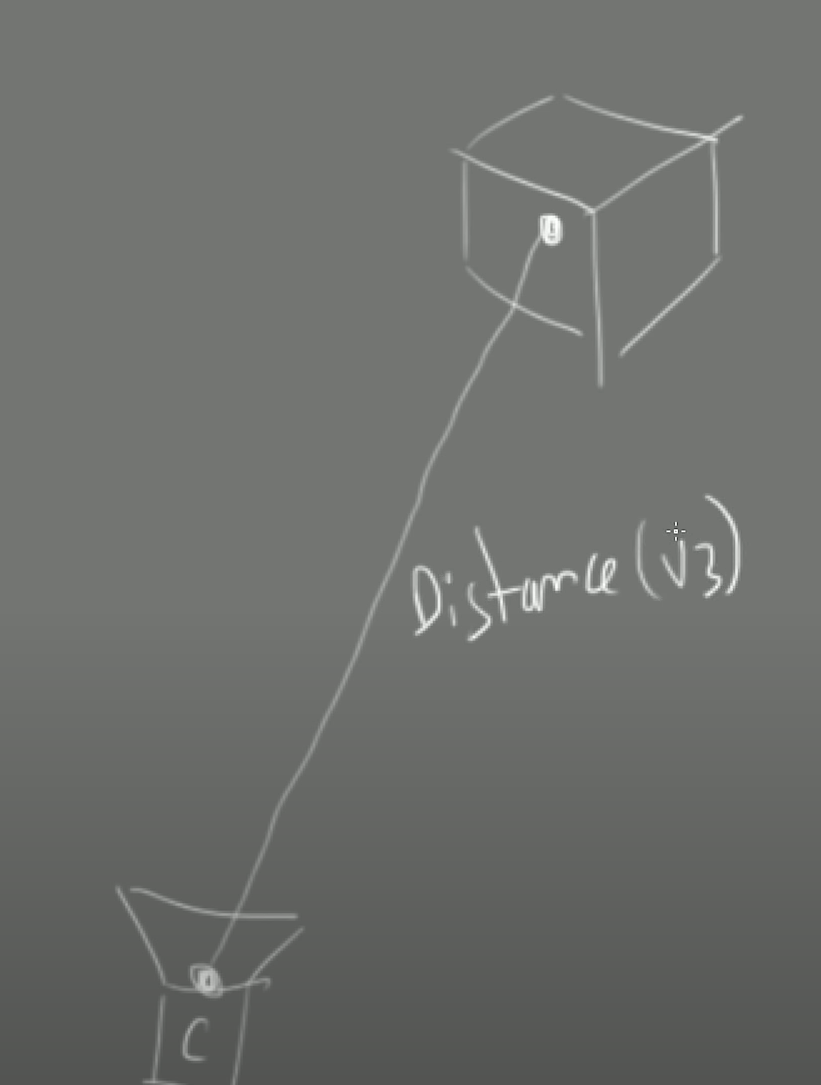 Distance (V3)
C